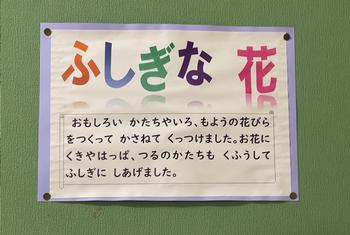 ふしぎな 花
おもしろい かたちやいろ、もようの花びら
をつくって かさねて くっつけました。お花に
くきやはっぱ、つるのかたちも くふうして
ふしぎに しあげました。